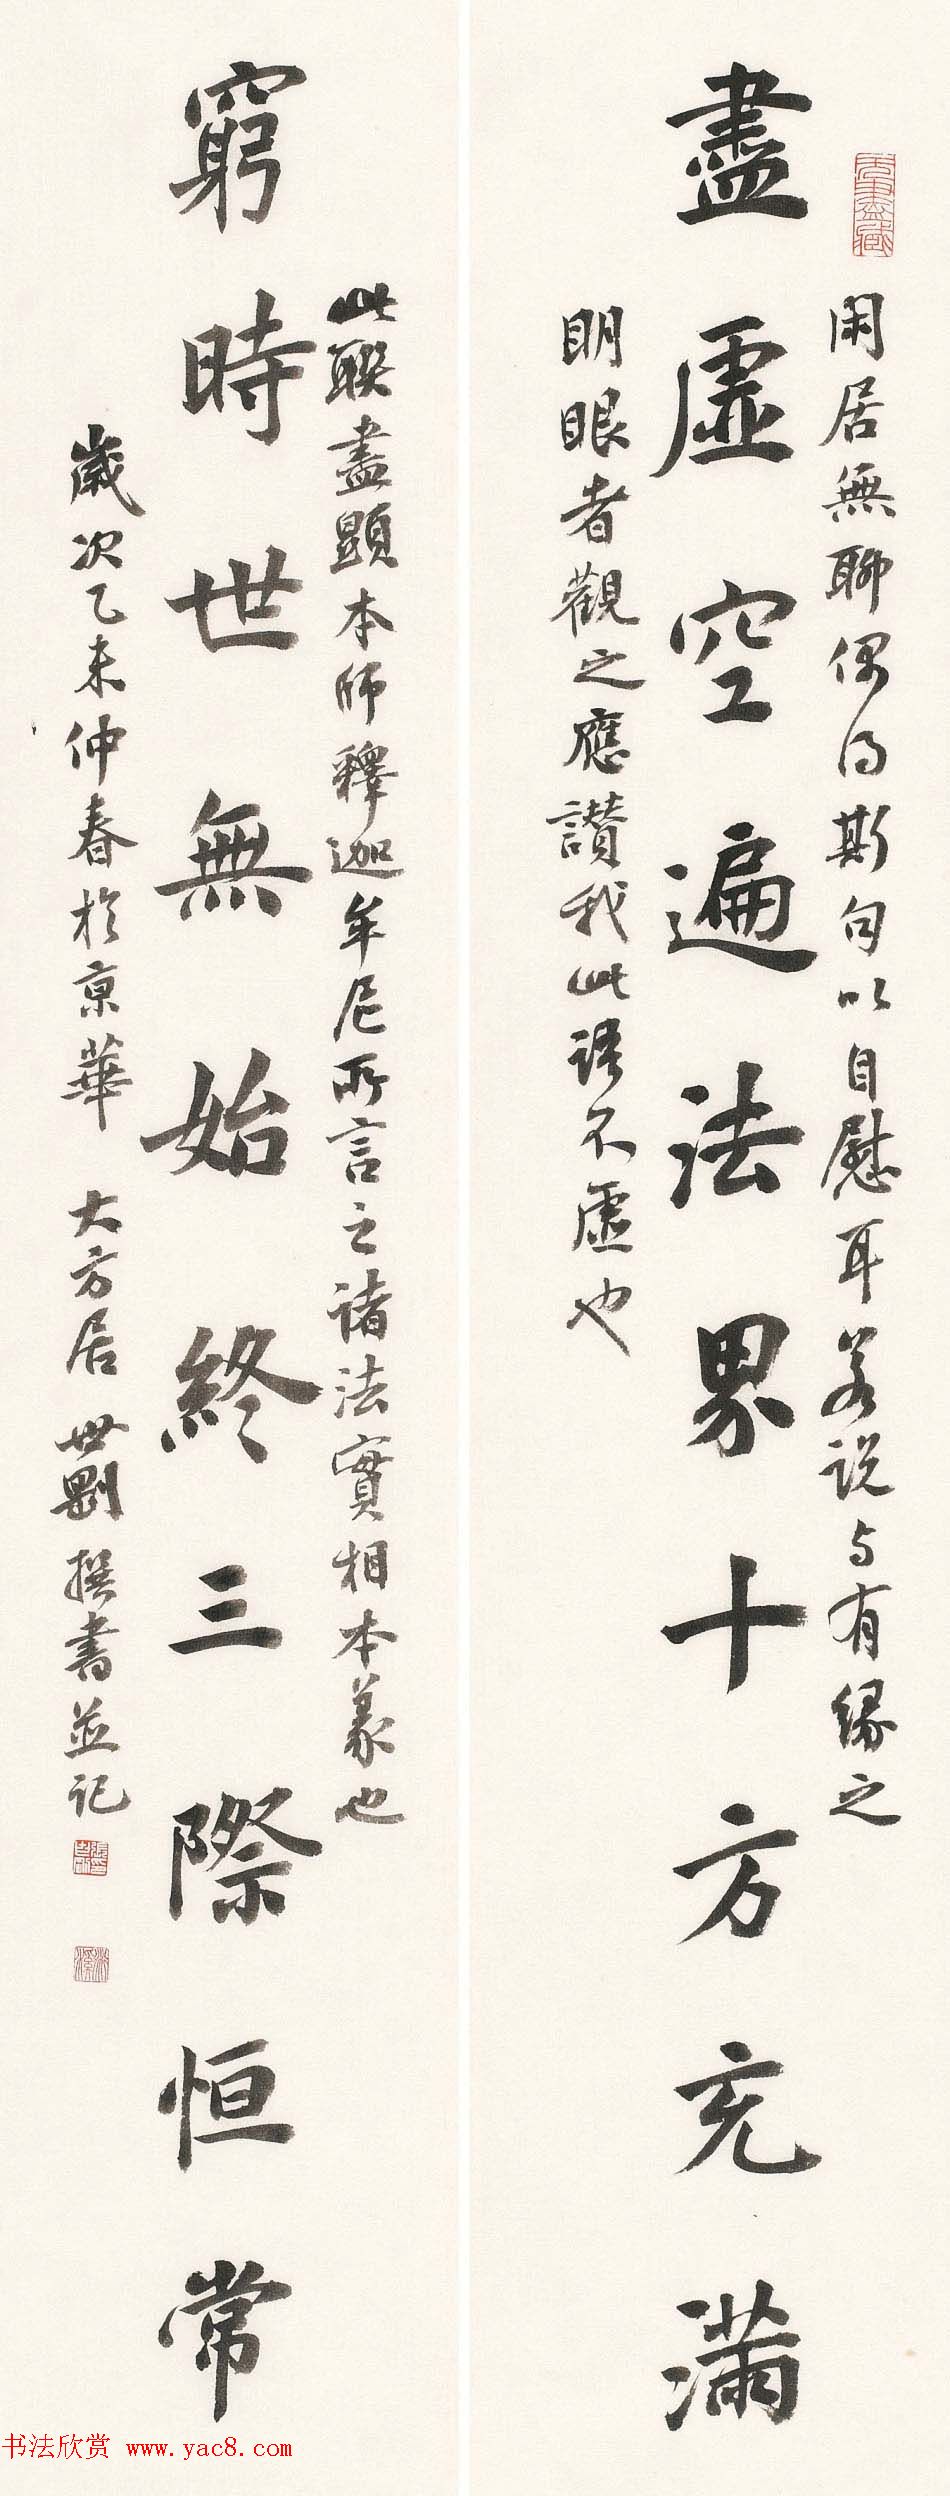 盡虛空遍法界十方充滿
閑居無聊偶得斯句以自慰耳若說与有緣之
明眼者觀之應讚我此語不虛也
窮時世無始終三際恒常
此聯盡顯本師釋迦牟尼所言之諸法實相本義也
歲次乙未仲春於京華 大方居 世剛 撰書並記
书法欣赏 www.yac8.com